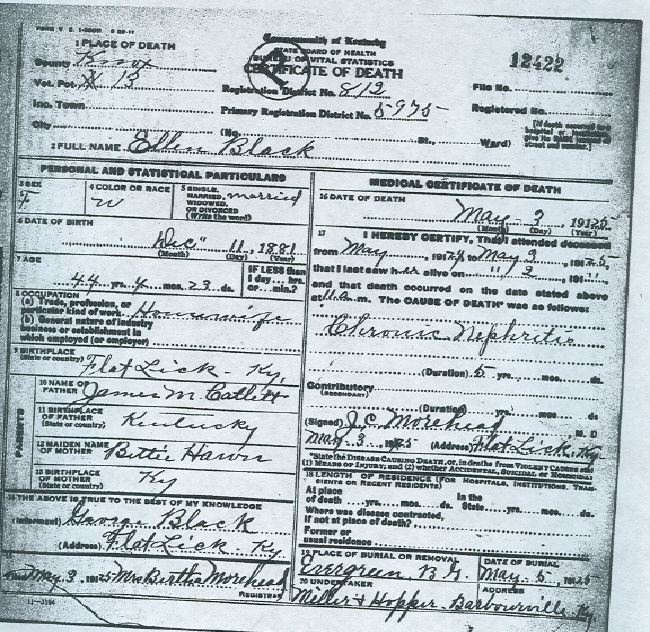 1 PLACE OF DEATH
County Knox
Vot. Pct. # 13
Inc. Town
City
Commonwealth of Kentucky
STATE BOARD OF HEALTH
BUREAU OF VITAL STATISTICS
CERTIFICATE OF DEATH
12422
Registration District No. 812
File No.
Primary Registration District No. 5975
Registered No.
(No. St., Ward)
(If death occurred
2 FULL NAME Ellen Black
PERSONAL AND STATISTICAL PARTICULARS
3 SEX F
4 COLOR OR RACE W
5 SINGLE, MARRIED, WIDOWED, OR DIVORCED (Write the word) married
6 DATE OF BIRTH
Dec 11, 1881
(Month) (Day) (Year)
7 AGE
44 yrs. 4 mos. 23 ds.
IF LESS than
1 day... hrs.
or... min.?
8 OCCUPATION
(a) Trade, profession, or
particular kind of work Housewife
(b) General nature of industry
business or establishment in
which employed (or employer)
9 BIRTHPLACE
(State or country) Flat Lick - Ky,
PARENTS
10 NAME OF
FATHER James M. Catlett
11 BIRTHPLACE
OF FATHER
(State or country) Kentucky
12 MAIDEN NAME
OF MOTHER Bettie Hawn
13 BIRTHPLACE
OF MOTHER
(State or country) Ky
THE ABOVE IS TRUE TO THE BEST OF MY KNOWLEDGE
(Informant) George Black
(Address) Flat Lick - Ky.
May 3, 1925 Mrs Bertha Morehead
REGISTRAR
MEDICAL CERTIFICATE OF DEATH
16 DATE OF DEATH
May 3 1925
(Month) (Day) (Year)
17 I HEREBY CERTIFY, That I attended deceased
from May 192 to May 3, 1925
that I last saw her alive on " 2, 19
and that death occurred on the date stated above
at m. The CAUSE OF DEATH* was as follows:
Chronic Nephritis
(Duration) 5 yrs. mos. ds.
Contributory
(SECONDARY)
(Duration) yrs. mos. ds.
(Signed) J. C. Morehead M. D
May 3, 1925 (Address) Flat Lick, Ky
*State the DISEASE CAUSING DEATH, or, in deaths from VIOLENT CAUSES state
(1) MEANS OF INJURY; and (2) whether ACCIDENTAL, SUICIDAL or HOMICIDAL
18 LENGTH OF RESIDENCE (FOR HOSPITALS, INSTITUTIONS, TRANSIENTS OR RECENT RESIDENTS)
At place
of death yrs. mos. ds.
In the
State yrs. mos. ds.
Where was disease contracted,
if not at place of death?
Former or
usual residence
19 PLACE OF BURIAL OR REMOVAL
Evergreen B. G.
DATE OF BURIAL
May - 5 - 1925
20 UNDERTAKER
Miller & Hopper
ADDRESS
Barbourville Ky
11-3184